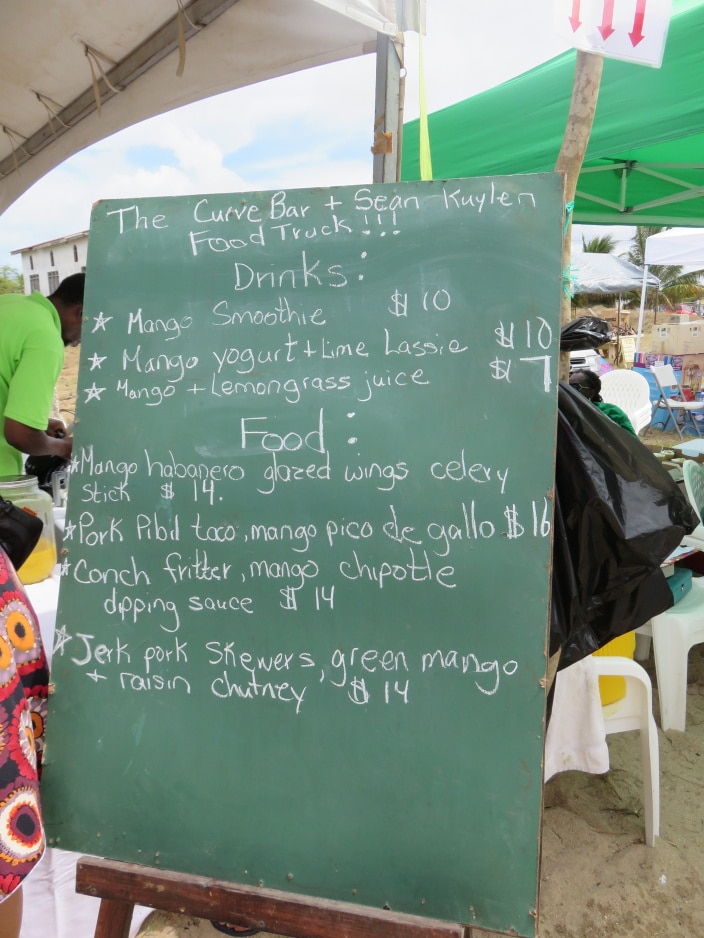 The Curve Bar + Sean Kuylen
Food Truck !!!
Drinks:
☆ Mango Smoothie $10
☆ Mango yogurt + Lime Lassie $10
☆ Mango + Lemongrass juice $7
Food:
☆ Mango habanero glazed wings celery
stick $14.
☆ Pork Pibil taco, mango pico de gallo $16
☆ Conch fritter, mango chipotle
dipping sauce $14
☆ Jerk pork skewers, green mango
+ raisin chutney $14